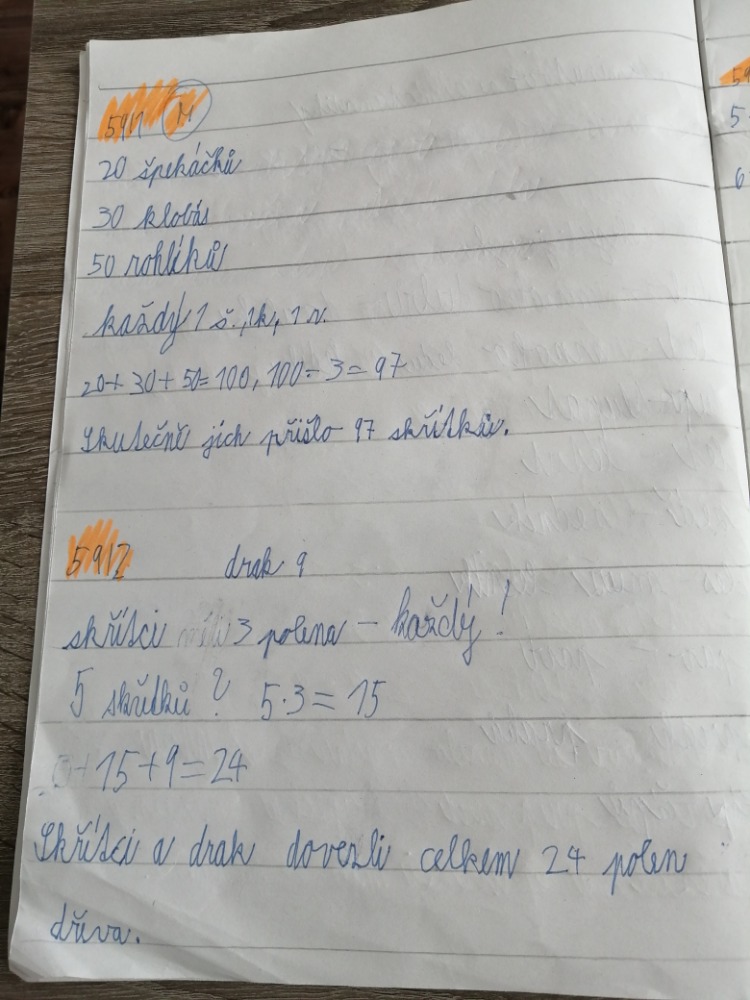 59/1 M
20 špekáčků
30 klobás
50 rohlíků
každý 1 š., 1k, 1 r.
20+ 30+ 50= 100, 100- 3= 97
Skutečně jich přišlo 97 skřítků.
59/2 drak 9
skřítci 3 polena – každý!
5 skřítků? 5·3=15
15+9=24
Skřítci a drak dovezli celkem 24 polen
dřeva.
59
5
6